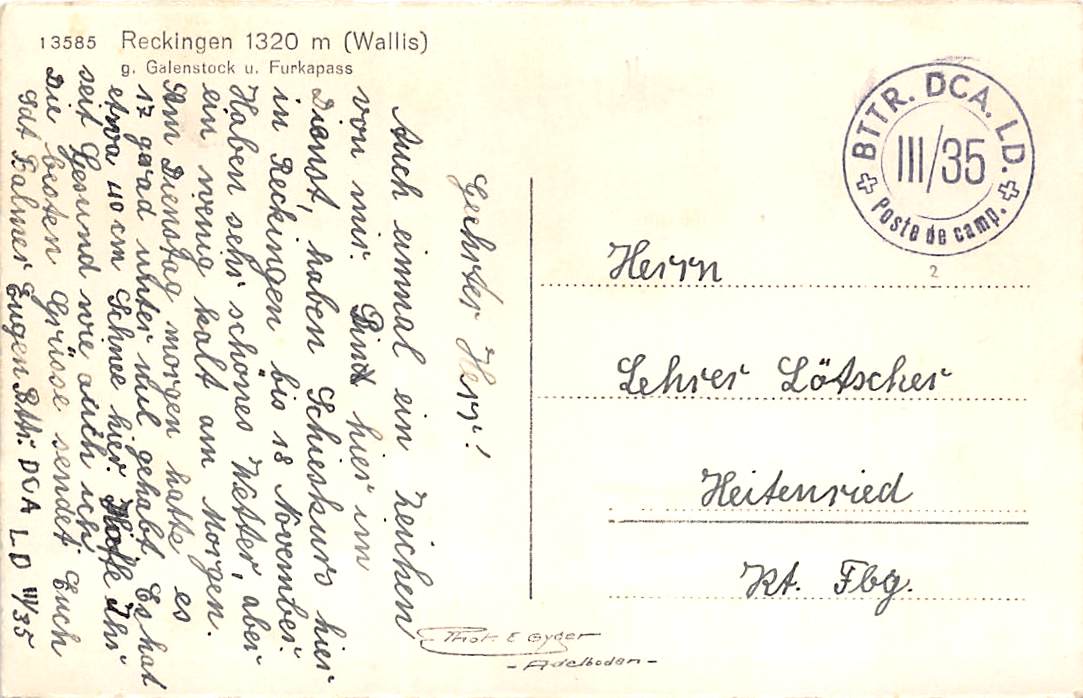 13585 Reckingen 1320 m (Wallis)
g. Galenstock u. Furkapass
Geehrter Herr!
Auch einmal ein Zeichen
von mir. Sind hier im
Dienst, haben Schieskurs hier
in Reckingen bis 18 November.
Haben sehr schönes Wetter, aber
ein wenig kalt am Morgen.
Am Dienstag morgen hatte es
17 grad unter nul gehabt. Es hat
etwa 40 cm Schnee hier. Hoffe Ihr
seit Gesund wie auch ich.
Die besten Grüsse sendet Euch
Sdt Balmer Eugen Bttr. DCA LD III/35
BTTR. DCA. LD.
III/35
Poste de camp.
2
Herrn
Lehrer Lötscher
Heitenried
Kt. Fbg.
Phot. E Gyger
- Adelboden -